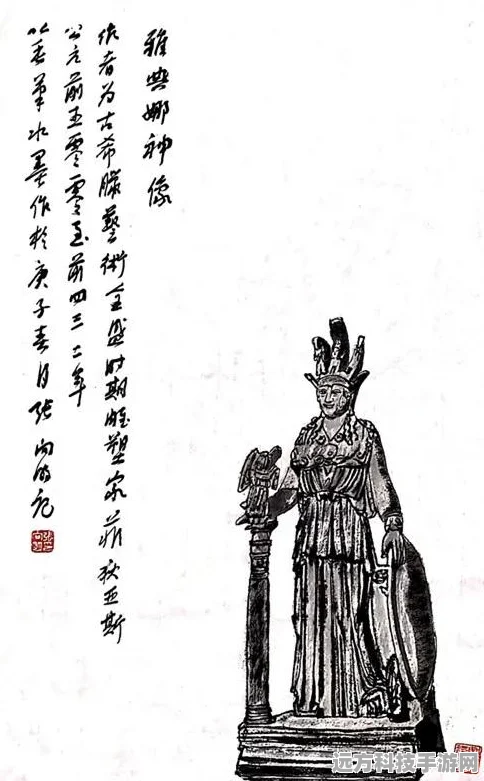 雅典娜神像
作者为古希臘藝術全盛时期雕塑家菲狄亚斯
公元前五零零至前四三二年
以笔水墨作於庚子春月张向记
远方科技手游网